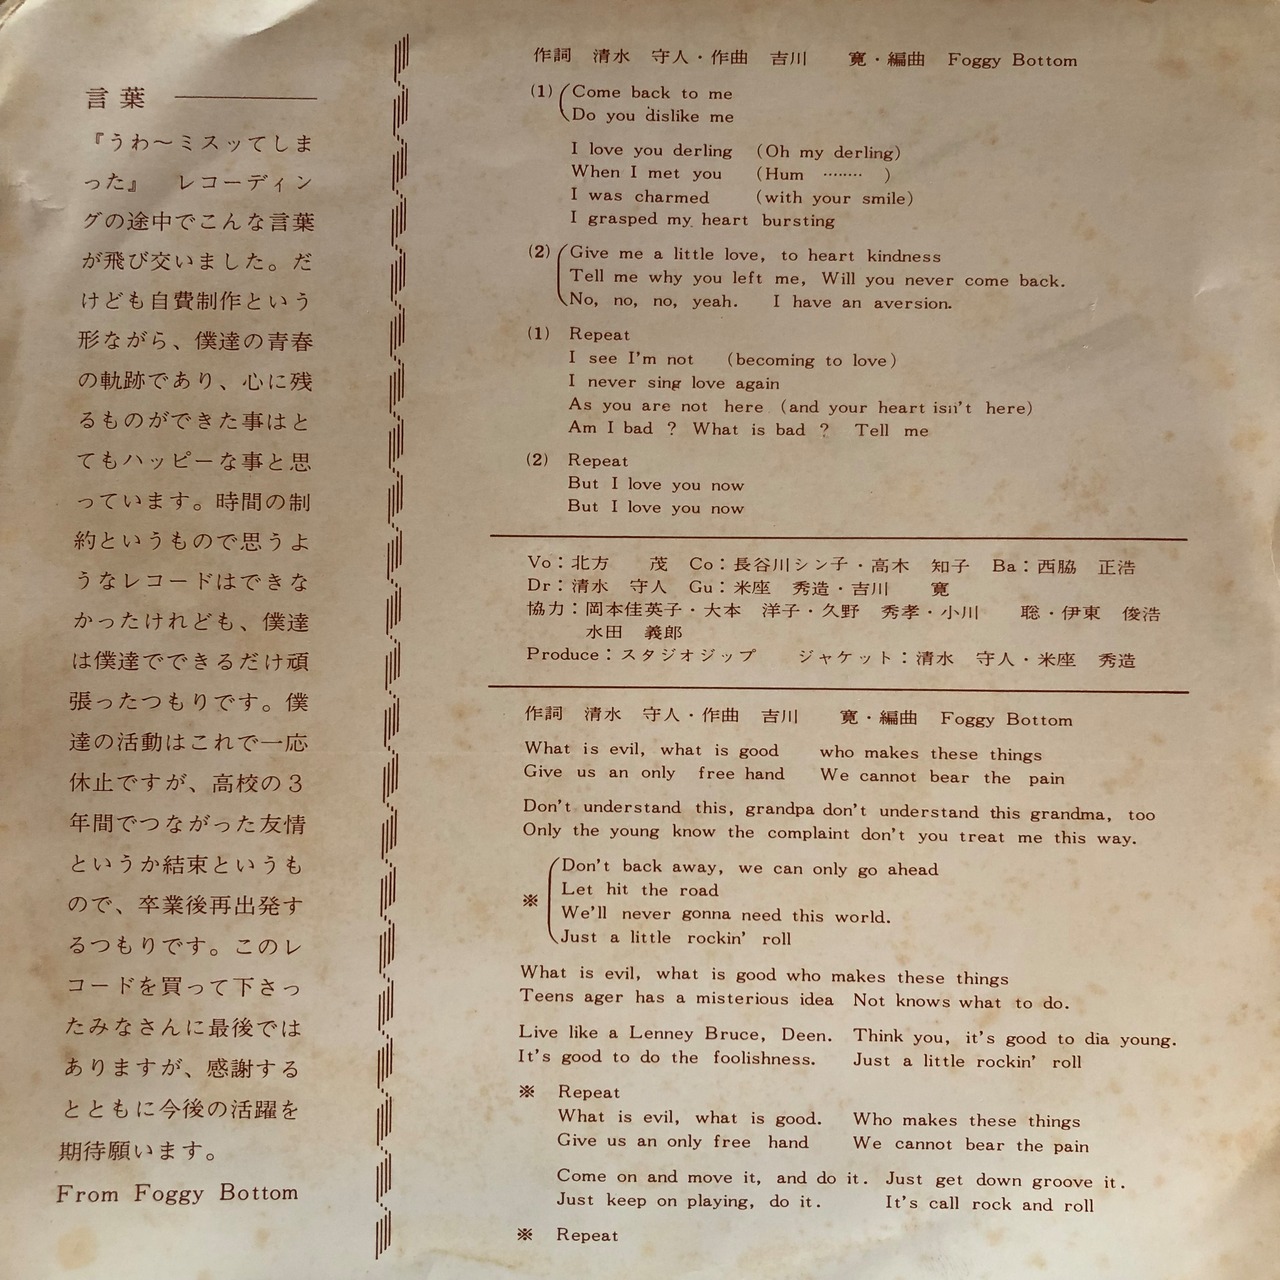 言葉
『うわ〜ミスッてしま
った』　レコーディン
グの途中でこんな言葉
が飛び交いました。だ
けども自費制作という
形ながら、僕達の青春
の軌跡であり、心に残
るものができた事はと
てもハッピーな事と思
っています。時間の制
約というもので思うよ
うなレコードはできな
かったけれども、僕達
は僕達でできるだけ頑
張ったつもりです。僕
達の活動はこれで一応
休止ですが、高校の３
年間でつながった友情
というか結束というも
ので、卒業後再出発す
るつもりです。このレ
コードを買って下さっ
たみなさんに最後では
ありますが、感謝する
とともに今後の活躍を
期待願います。
From Foggy Bottom
作詞　清水　守人・作曲　吉川　　寛・編曲　Foggy Bottom
(1) Come back to me
Do you dislike me
I love you derling (Oh my derling)
When I met you (Hum ········ )
I was charmed (with your smile)
I grasped my heart bursting
(2) Give me a little love, to heart kindness
Tell me why you left me, Will you never come back.
No, no, no, yeah. I have an aversion.
(1) Repeat
I see I'm not (becoming to love)
I never sing love again
As you are not here (and your heart isn't here)
Am I bad ? What is bad ? Tell me
(2) Repeat
But I love you now
But I love you now
Vo：北方　　茂　Co：長谷川シン子・高木　知子　Ba：西脇　正浩
Dr：清水　守人　Gu：米座　秀造・吉川　　寛
協力：岡本佳英子・大本　洋子・久野　秀孝・小川　　聡・伊東　俊浩
水田　義郎
Produce：スタジオジップ　　ジャケット：清水　守人・米座　秀造
作詞　清水　守人・作曲　吉川　　寛・編曲　Foggy Bottom
What is evil, what is good who makes these things
Give us an only free hand We cannot bear the pain
Don't understand this, grandpa don't understand this grandma, too
Only the young know the complaint don't you treat me this way.
Don't back away, we can only go ahead
Let hit the road
※ We'll never gonna need this world.
Just a little rockin' roll
What is evil, what is good who makes these things
Teens ager has a misterious idea Not knows what to do.
Live like a Lenney Bruce, Deen. Think you, it's good to dia young.
It's good to do the foolishness. Just a little rockin' roll
※ Repeat
What is evil, what is good. Who makes these things
Give us an only free hand We cannot bear the pain
Come on and move it, and do it. Just get down groove it.
Just keep on playing, do it. It's call rock and roll
※ Repeat